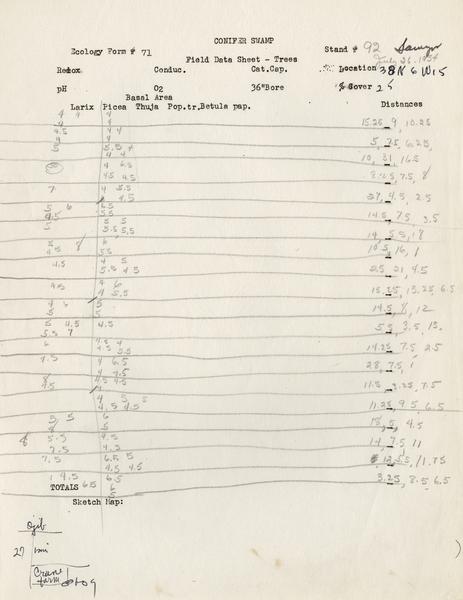 CONIFER SWAMP
Ecology Form # 71 Stand # 92 Sawyer
Field Data Sheet - Trees July 26, 1954
Redox Conduc. Cat.Cap. Location 38N 6W 15
pH O2 36"Bore Cover 25
Basal Area
Larix Picea Thuja Pop.tr, Betula pap. Distances
4 4 4
4 15.25, 9, 10.25
4.5 4 4
4 5, 7.5, 6.25,
5 5.5 4
4 4 10, 31, 16.5
4 6.5
4.5 4.5 7.5, 8
7 4 5.5
4.5 27, 4.5, 2.5
5 6 6.5
4.5 5.5 14.5, 7.5, 3.5
5 5 5
5.5 5.5 14, 5.5, 18
5 8 6
4.5 5.5 10.5, 16, 1
4.5 4 5
5.5 4.5 25, 21, 4.5
4.5 4 6
4 5.5 15.25, 13.25, 6.5
4 6 5
5 5 14.5, 8, 12
5 4.5 4.5
5.5 7 5.5, 3.5, 13.
6 4.5 4
4.5 5.5 14.25, 7.5, 2.5
4.5 4 6.5
4 4.5 28, 7.5, 1
8 4.5 4.5
4.5 4 11.5, 3.25, 7.5
4 5 5
4.5 4.5 11.25, 9.5, 6.5
5.5 5 6
4 5 15, 5, 4.5
8 5.5 4.5
7.5 4.5 14, 7.5, 11
7.5 6.5 5
4.5 4.5 12, 5.5, 1.75
4.5 6.5 3.25, 8.5, 6.5
TOTALS 6.5 6
5
Sketch Map:
Ojib
27 mi
Crane
farm